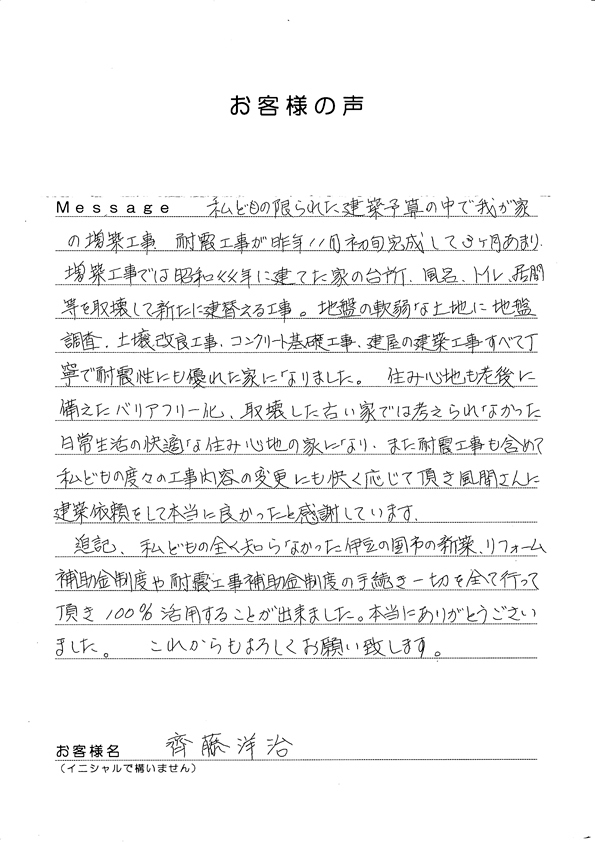 お客様の声
Message　私どもの限られた建築予算の中で我が家
の増築工事、耐震工事が昨年11月初旬完成して3ヶ月あまり、
増築工事では昭和44年に建てた家の台所、風呂、トイレ、居間
等を取壊して新たに建替える工事。地盤の軟弱な土地に地盤
調査、土壌改良工事、コンクリート基礎工事、建屋の建築工事すべて丁
寧で耐震性にも優れた家になりました。　住み心地も老後に
備えたバリアフリー化、取壊した古い家では考えられなかった
日常生活の快適な住み心地の家になり、また耐震工事も含めて
私どもの度々の工事内容の変更にも快く応じて頂き風間さんに
建築依頼をして本当に良かったと感謝しています。
追記、私どもの全く知らなかった伊豆の国市の新築、リフォーム
補助金制度や耐震工事補助金制度の手続き一切を全て行って
頂き100％活用することが出来ました。本当にありがとうござい
ました。　これからもよろしくお願い致します。
お客様名　齊藤洋治
（イニシャルで構いません）